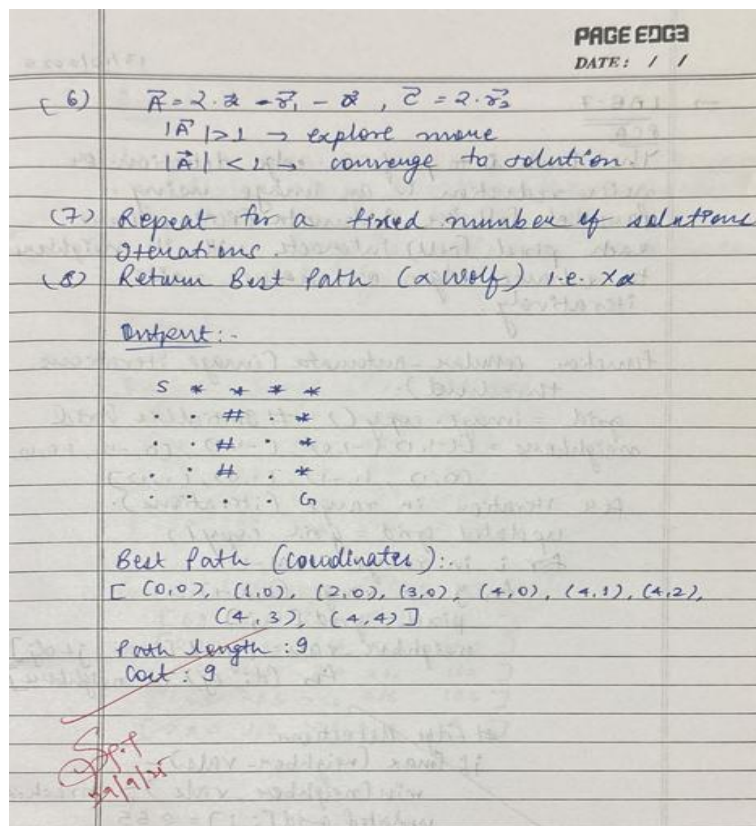 PAGE EDGE
DATE: / /
(6) A⃗ = 2·a⃗ - r⃗₁ - a⃗ , C⃗ = 2·r⃗₂
|A⃗|>1 → explore more
|A⃗| < 1 → converge to solution.
(7) Repeat for a fixed number of solutions
iterations.
(8) Return Best Path (α Wolf) i.e. Xα
Output:-
S * * * *
. . # . *
. . # . *
. . # . *
. . . . G
Best Path (coordinates):-
[ (0,0), (1,0), (2,0), (3,0), (4,0), (4,1), (4,2),
(4,3), (4,4) ]
Path length : 9
Cost : 9
29/9/25